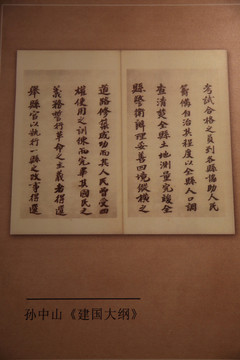 考試合格之員到各縣協助人民
籌備自治其程度以全縣人口調
查清楚全縣土地測量完竣全
縣警衛辦理妥善四境縱橫之
道路修築成功而其人民曾受四
權使用之訓練而完畢其國民之
義務誓行革命之主義者得選
舉縣官以執行一縣之政事得選
孙中山《建国大纲》